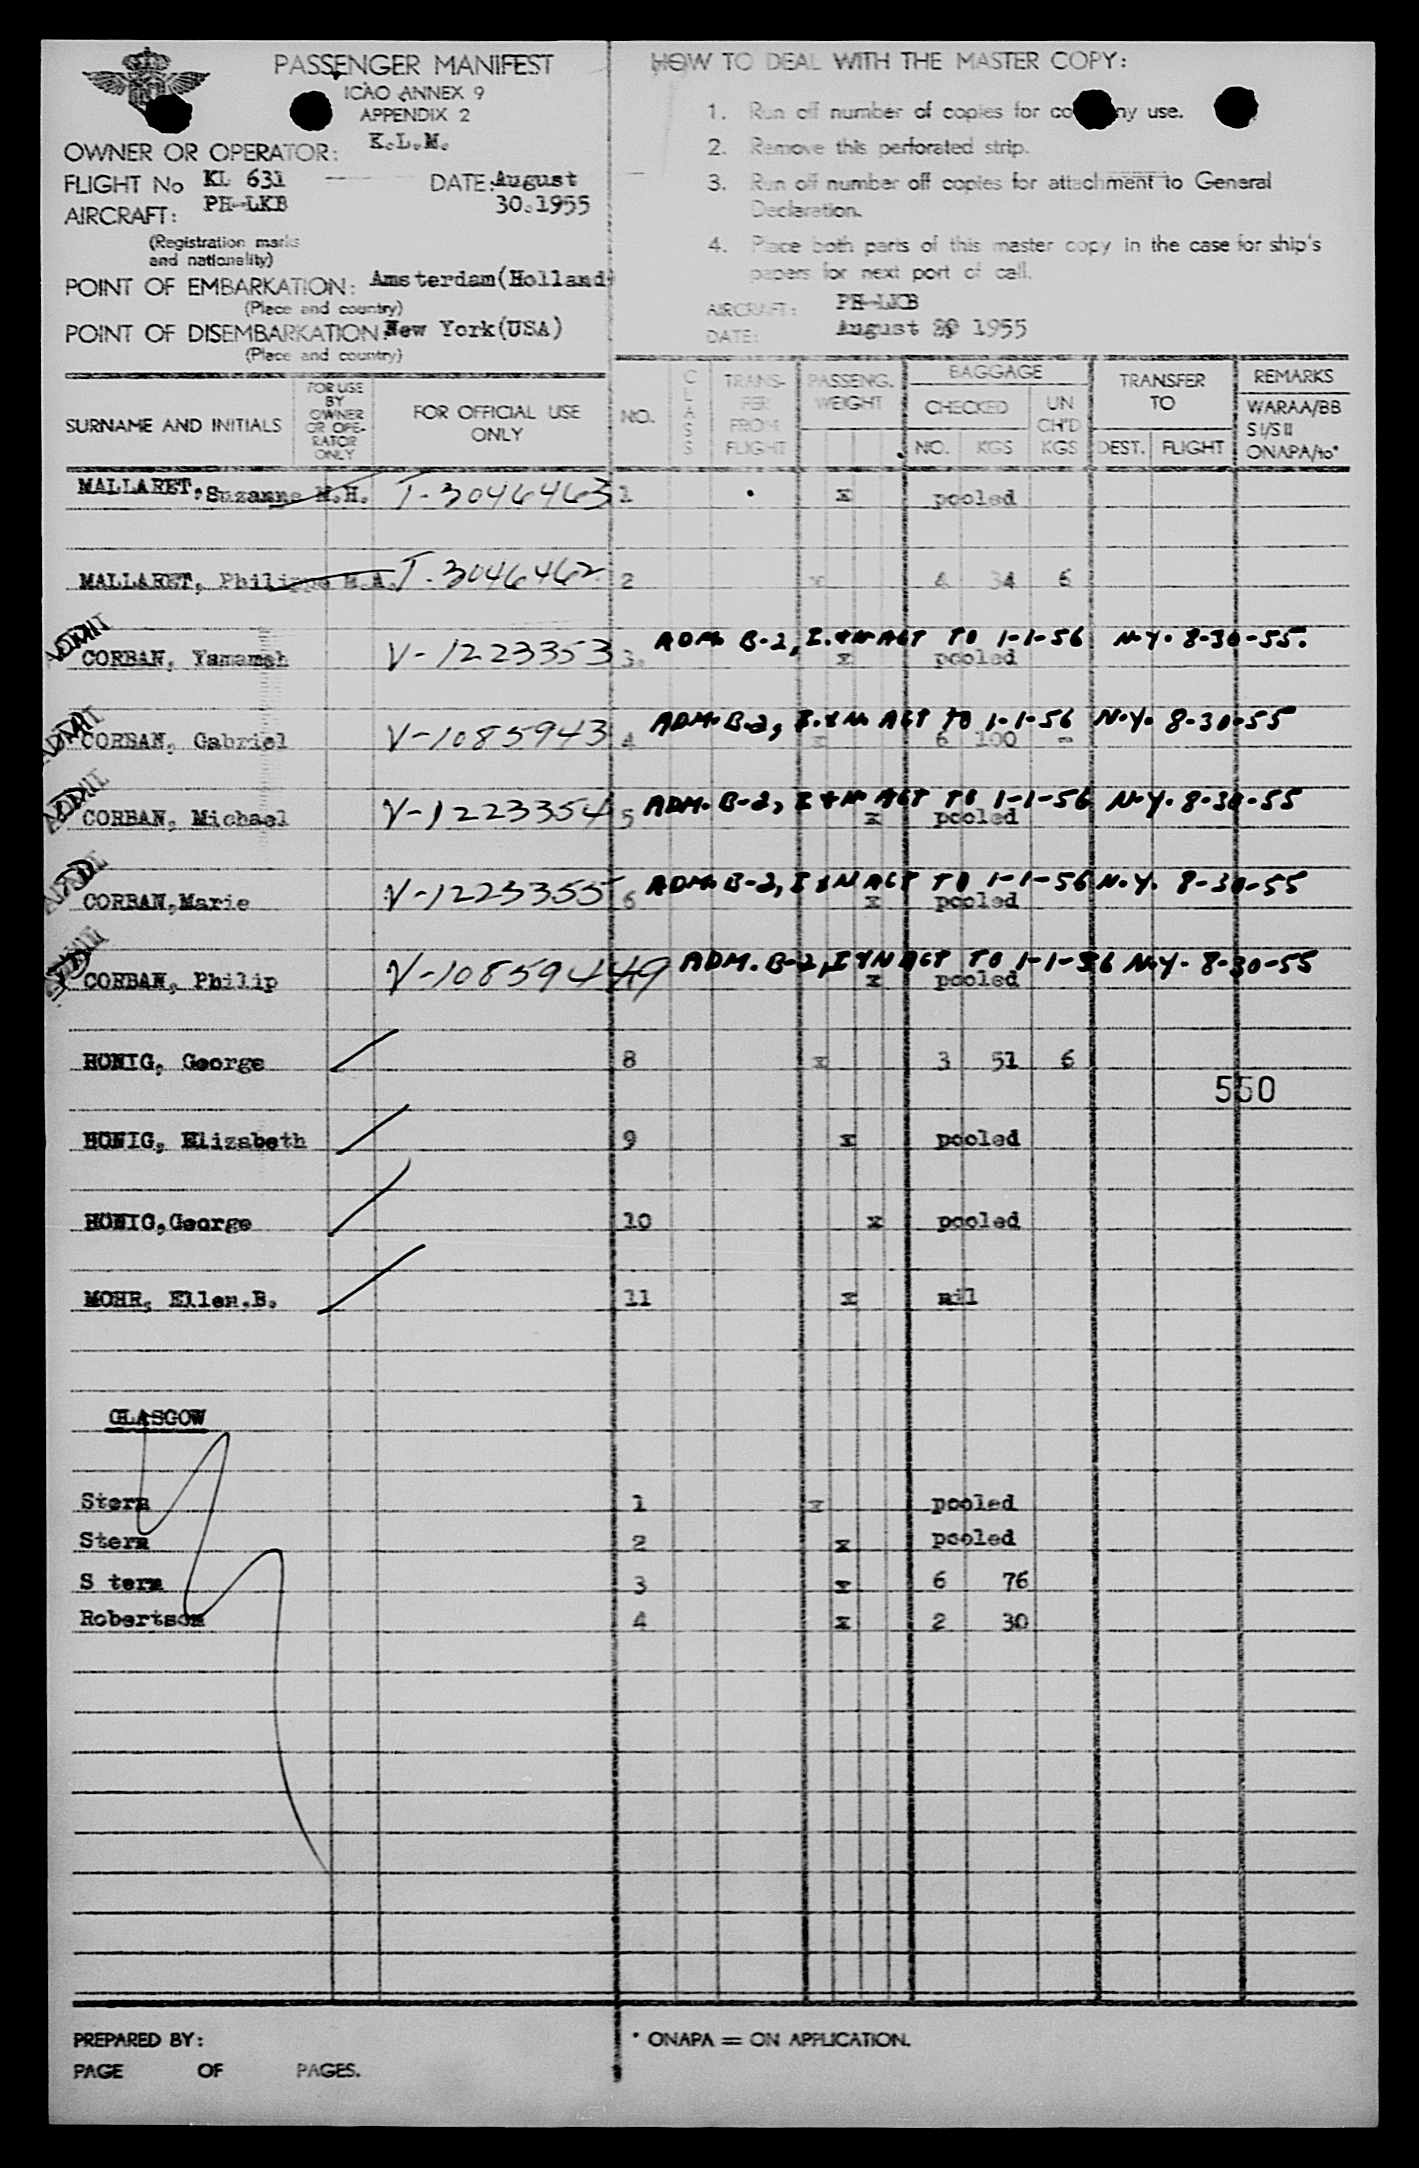 PASSENGER MANIFEST
ICAO ANNEX 9
APPENDIX 2
OWNER OR OPERATOR: K.L.M.
FLIGHT No KL 631 DATE: August
30.1955
AIRCRAFT: PH-LKB
(Registration marks
and nationality)
POINT OF EMBARKATION: Amsterdam(Holland)
(Place and country)
POINT OF DISEMBARKATION: New York(USA)
(Place and country)
HOW TO DEAL WITH THE MASTER COPY:
1. Run off number of copies for company use.
2. Remove this perforated strip.
3. Run off number off copies for attachment to General
Declaration.
4. Place both parts of this master copy in the case for ship's
papers for next port of call.
AIRCRAFT: PH-LKB
DATE: August 1955
SURNAME AND INITIALS
FOR USE
BY
OWNER
OR OPE-
RATOR
ONLY
FOR OFFICIAL USE
ONLY
NO.
CLASS
TRANS-
FER
FROM
FLIGHT
PASSENG.
WEIGHT
BAGGAGE
CHECKED
NO. KGS
UN
CH'D
KGS
TRANSFER
TO
DEST. FLIGHT
REMARKS
WARAA/BB
SI/SII
ONAPA/to*
MALLARET, Suzanne M.H. T-3046463 1 x pooled
MALLARET, Philippe H.A. T-3046462 2 x 4 34 6
ADMIT
ADM. B-2, I.+N ACT TO 1-1-56 N.Y. 8-30-55.
CORBAN, Yamameh V-1223353 3. x pooled
ADMIT
ADM. B-2, I.+N ACT TO 1-1-56 N.Y. 8-30-55
CORBAN, Gabriel V-1085943 4 x 6 100 -
ADMIT
ADM. B-2, I+N ACT TO 1-1-56 N.Y. 8-30-55
CORBAN, Michael V-1223354 5 x pooled
ADMIT
ADM. B-2, I+N ACT TO 1-1-56 N.Y. 8-30-55
CORBAN,Marie V-1223355 6 x pooled
ADM. B-2, I+N ACT TO 1-1-56 N.Y. 8-30-55
CORBAN, Philip x pooled
HONIG, George 8 x 3 51 6
550
HONIG, Elizabeth 9 x pooled
HONIG,George 10 x pooled
MOHR, Ellen.B. 11 x nil
GLASGOW
Stern 1 x pooled
Stern 2 x pooled
S tern 3 x 6 76
Robertson 4 x 2 30
PREPARED BY:
PAGE OF PAGES.
* ONAPA = ON APPLICATION.